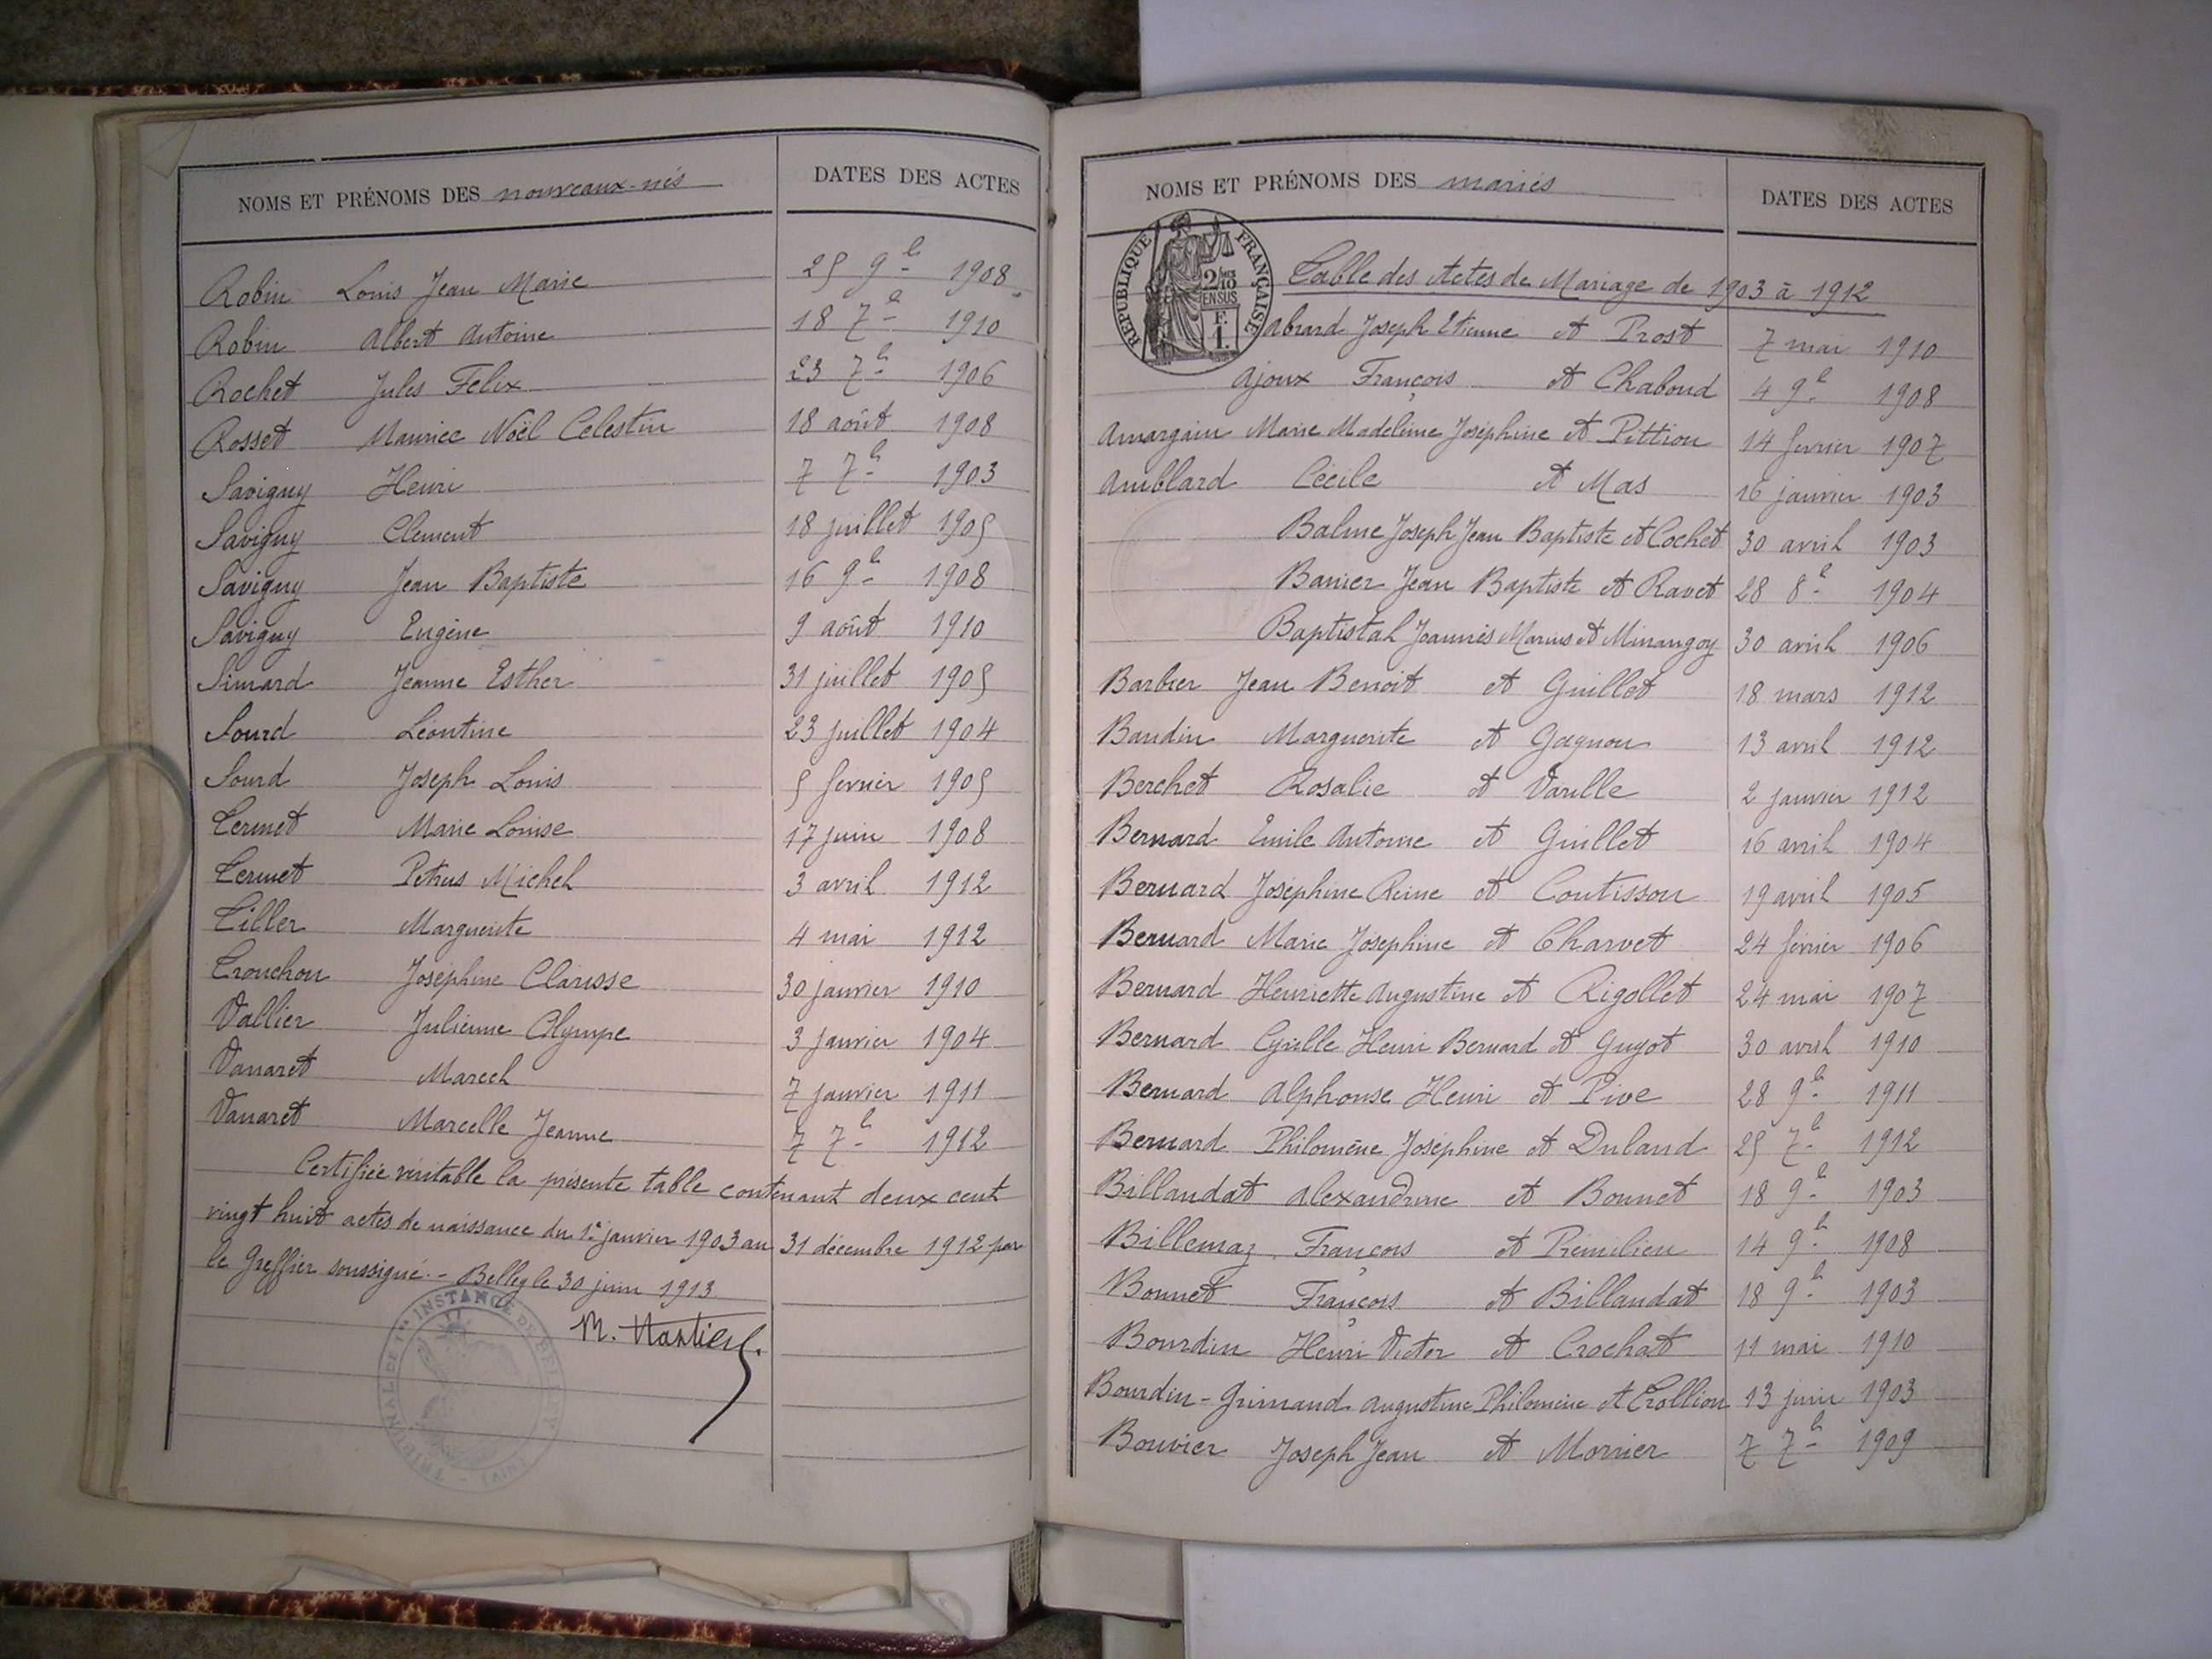 NOMS ET PRÉNOMS DES nouveaux-nés DATES DES ACTES
Robin Louis Jean Marie 25 9bre 1908
Robin Albert Antoine 18 7bre 1910
Rochet Jules Felix 23 7bre 1906
Rosset Maurice Noël Celestin 18 août 1908
Savigny Henri 7 7bre 1903
Savigny Clement 18 juillet 1905
Savigny Jean Baptiste 16 9bre 1908
Savigny Eugène 9 août 1910
Simard Jeanne Esther 31 juillet 1905
Sourd Léontine 23 juillet 1904
Sourd Joseph Louis 5 fevrier 1905
Termet Marie Louise 17 juin 1908
Termet Petrus Michel 3 avril 1912
Tiller Marguerite 4 mai 1912
Trouchon Joséphine Clarisse 30 janvier 1910
Vallier Julienne Olympe 3 janvier 1904
Vanaret Marcel 7 janvier 1911
Vanaret Marcelle Jeanne 7 7bre 1912
Certifiée véritable la présente table contenant deux cent
vingt huit actes de naissance du 1er janvier 1903 au 31 décembre 1912 par
le Greffier soussigné.- Belley le 30 juin 1913
TRIBUNAL DE 1re INSTANCE DE BELLEY
NOMS ET PRÉNOMS DES mariés DATES DES ACTES
RÉPUBLIQUE FRANÇAISE
2/10
EN SUS
F.
1.
Table des Actes de Mariage de 1903 à 1912
Abrard Joseph Etienne et Prost 7 mai 1910
Ajoux François et Chaboud 4 9bre 1908
Amargain Marie Madeleine Joséphine et Pittion 14 fevrier 1907
Amblard Cécile et Mas 16 janvier 1903
Balme Joseph Jean Baptiste et Cochet 30 avril 1903
Banier Jean Baptiste et Ravet 28 8bre 1904
Baptistal Joannès Marius et Minangoy 30 avril 1906
Barbier Jean Benoit et Guillet 18 mars 1912
Baudin Marguerite et Gagnon 13 avril 1912
Berchet Rosalie et Varille 2 janvier 1912
Bernard Emile Antoine et Guillet 16 avril 1904
Bernard Joséphine Reine et Coutisson 19 avril 1905
Bernard Marie Joséphine et Charvet 24 février 1906
Bernard Henriette Augustine et Rigollet 24 mai 1907
Bernard Cyrille Henri Bernard et Guyot 30 avril 1910
Bernard Alphonse Henri et Pive 28 9bre 1911
Bernard Philomène Joséphine et Duland 25 7bre 1912
Billaudat Alexandrine et Bonnet 18 9bre 1903
Billemaz François et Prémilieu 14 9bre 1908
Bonnet François et Billaudat 18 9bre 1903
Bourdin Henri Victor et Crochat 11 mai 1910
Bourdin-Grimaud Augustine Philomène et Trollion 13 juin 1903
Bouvier Joseph Jean et Mornier 7 7bre 1909